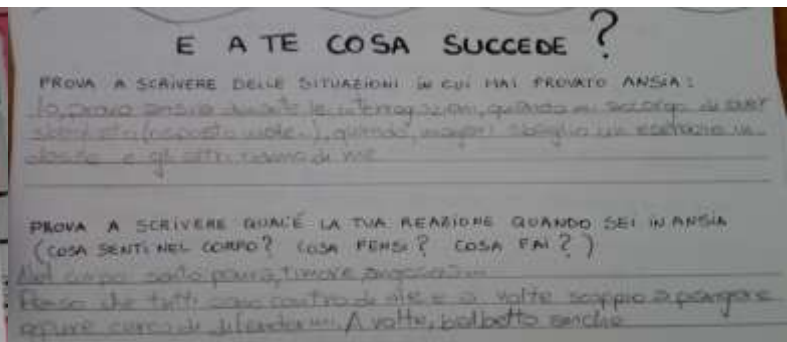 E A TE COSA SUCCEDE?
PROVA A SCRIVERE DELLE SITUAZIONI IN CUI HAI PROVATO ANSIA:
Io, provo ansia durante le interrogazioni, quando mi accorgo di aver
sbagliato (risposta male), quando, magari sbaglio un esercizio in
classe e gli altri ridono di me
PROVA A SCRIVERE QUAL'È LA TUA REAZIONE QUANDO SEI IN ANSIA
(COSA SENTI NEL CORPO? COSA PENSI? COSA FAI?)
Nel corpo sento paura, timore, angoscia
Penso che tutti sono contro di me e a volte scoppio a piangere
oppure cerco di difendermi. A volte, balbetto anche